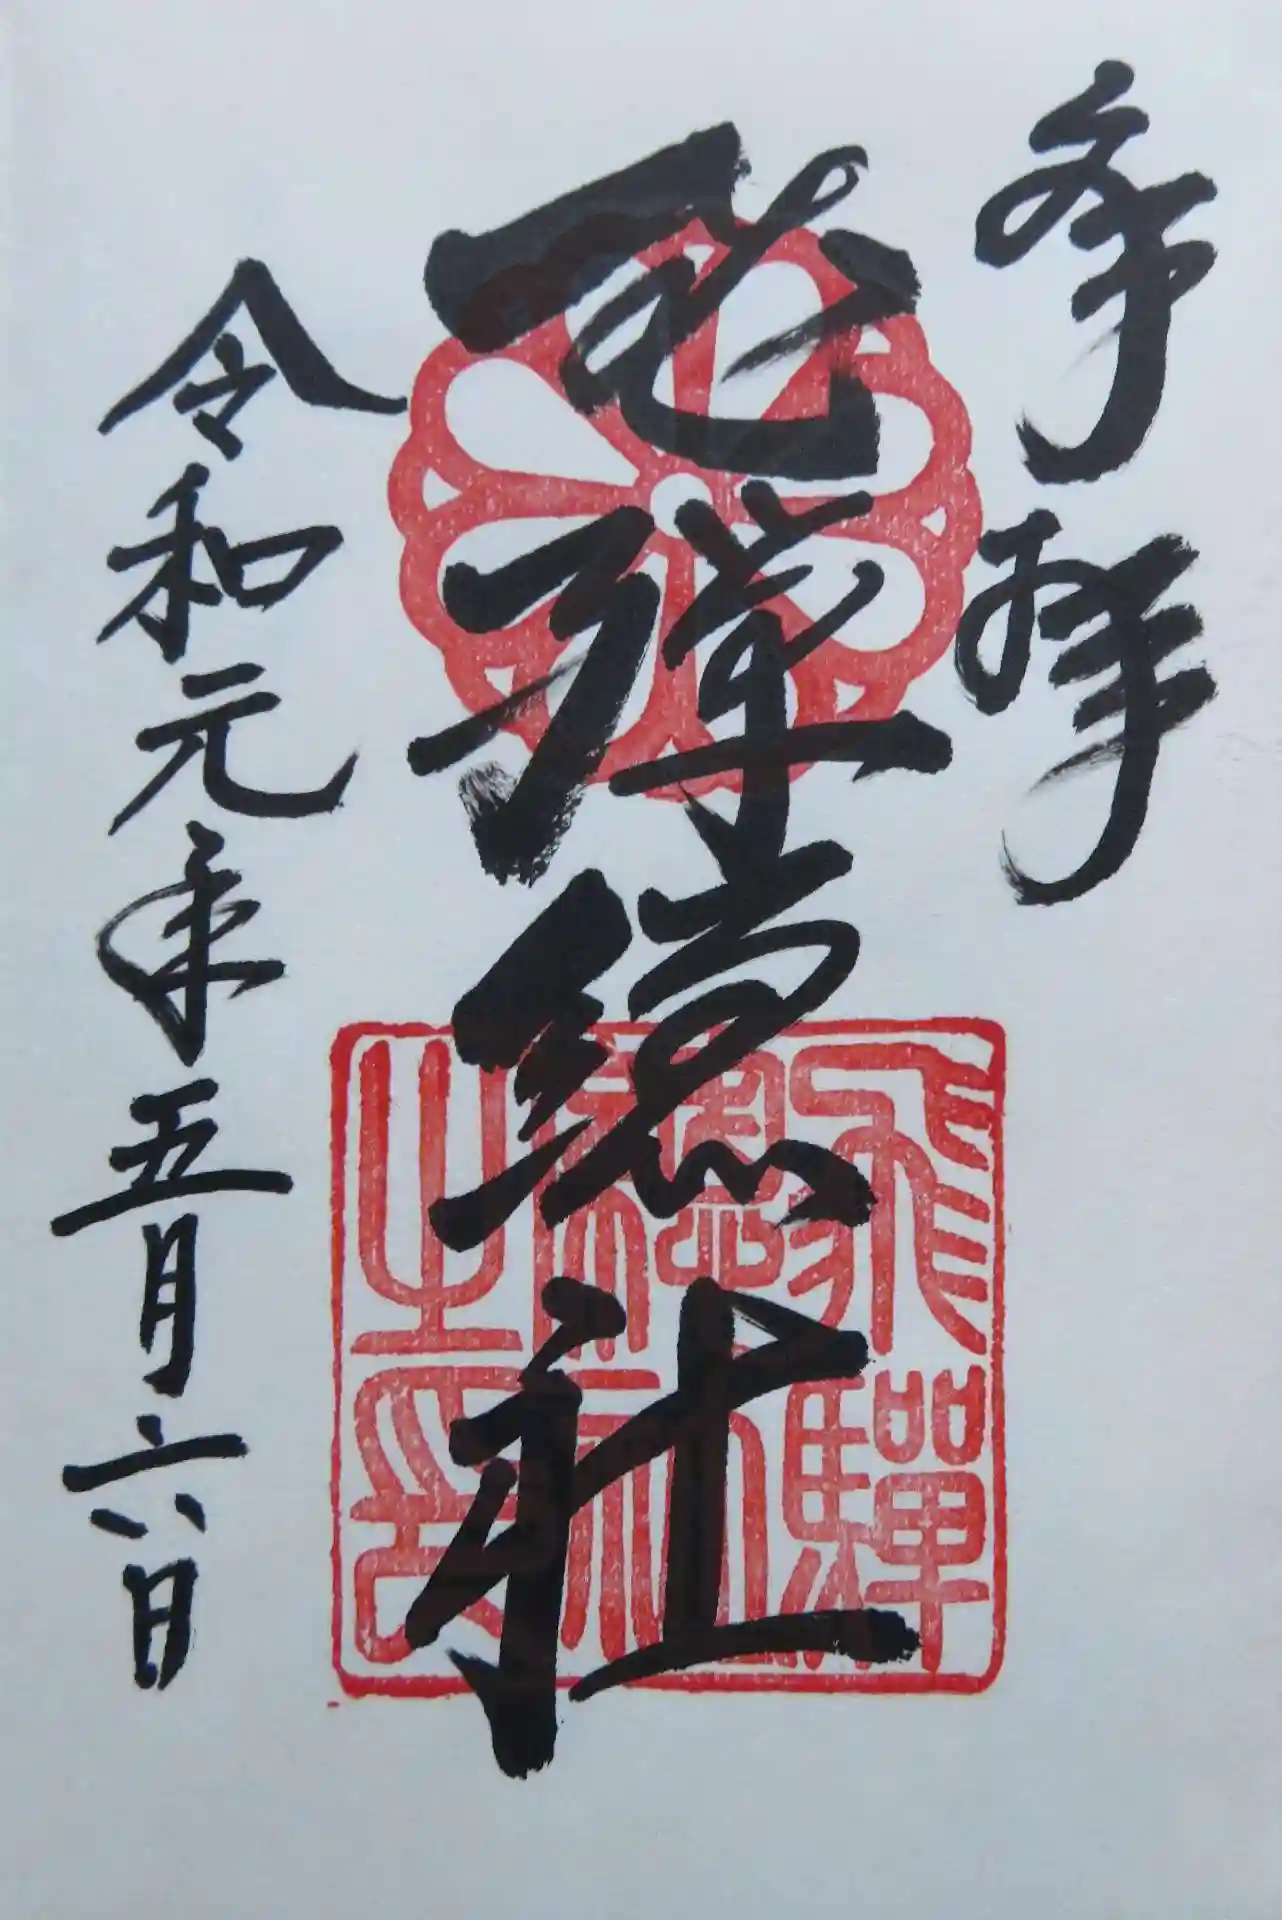 奉拝
飛騨總社
令和元年五月六日
飛驒
總社
之印